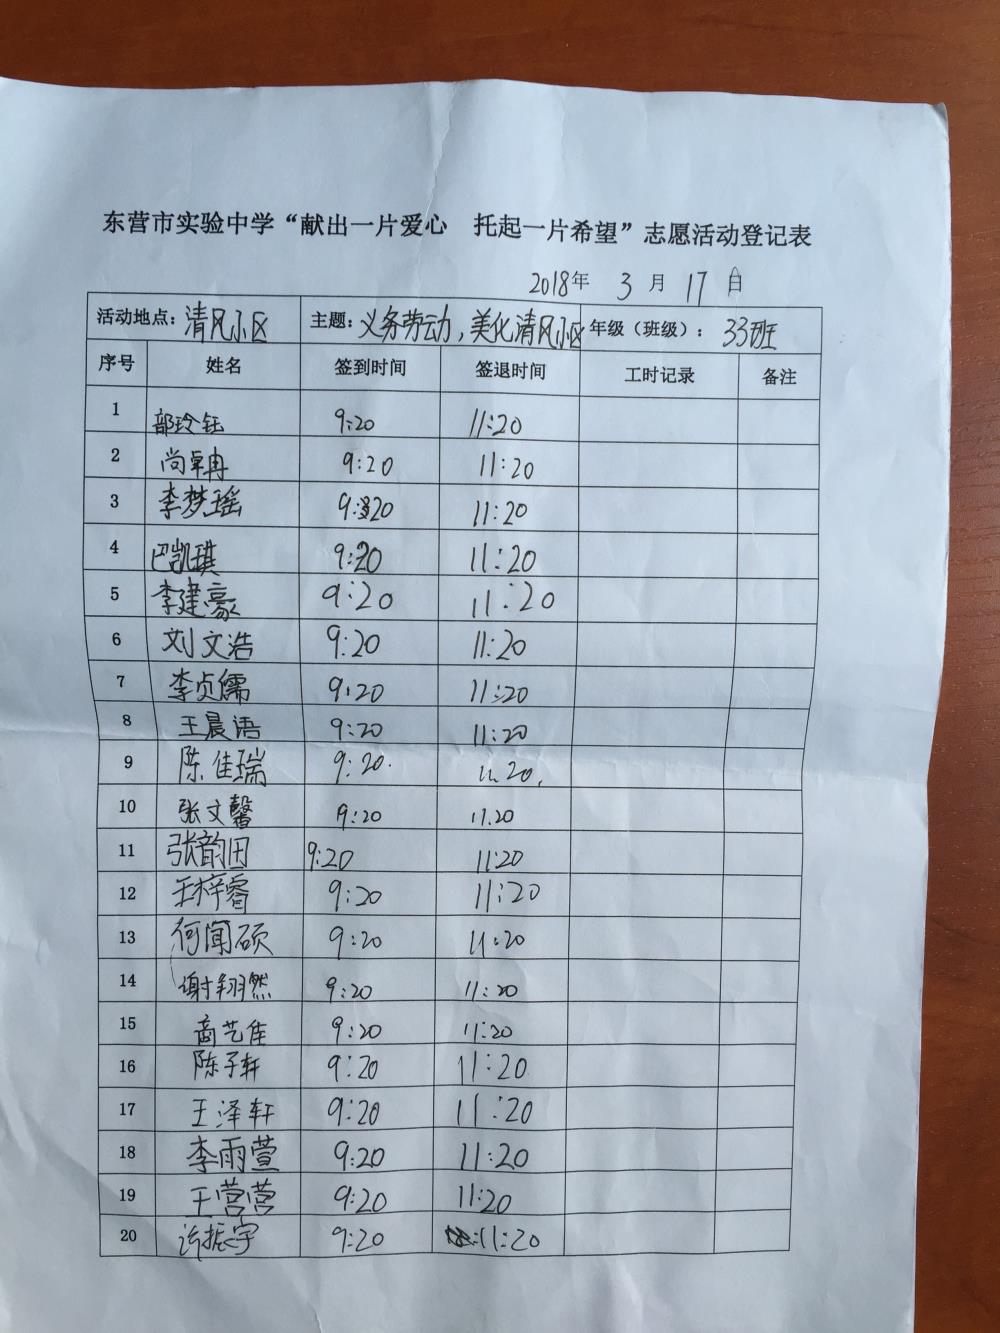 东营市实验中学“献出一片爱心 托起一片希望”志愿活动登记表
2018年 3 月 17 日
活动地点：清风小区 主题：义务劳动，美化清风小区 年级（班级）：33班
序号 姓名 签到时间 签退时间 工时记录 备注
1 部玲钰 9:20 11:20
2 尚早冉 9:20 11:20
3 李梦瑶 9:20 11:20
4 巴凯琪 9:20 11:20
5 李建豪 9:20 11:20
6 刘文浩 9:20 11:20
7 李贞儒 9:20 11:20
8 王晨语 9:20 11:20
9 陈佳瑞 9:20. 11:20.
10 张文馨 9:20 11:20
11 张韵田 9:20 11:20
12 王梓睿 9:20 11:20
13 何闻硕 9:20 11:20
14 谢翔然 9:20 11:20
15 商艺佳 9:20 11:20
16 陈子轩 9:20 11:20
17 王泽轩 9:20 11:20
18 李雨萱 9:20 11:20
19 王营营 9:20 11:20
20 许振宇 9:20 11:20